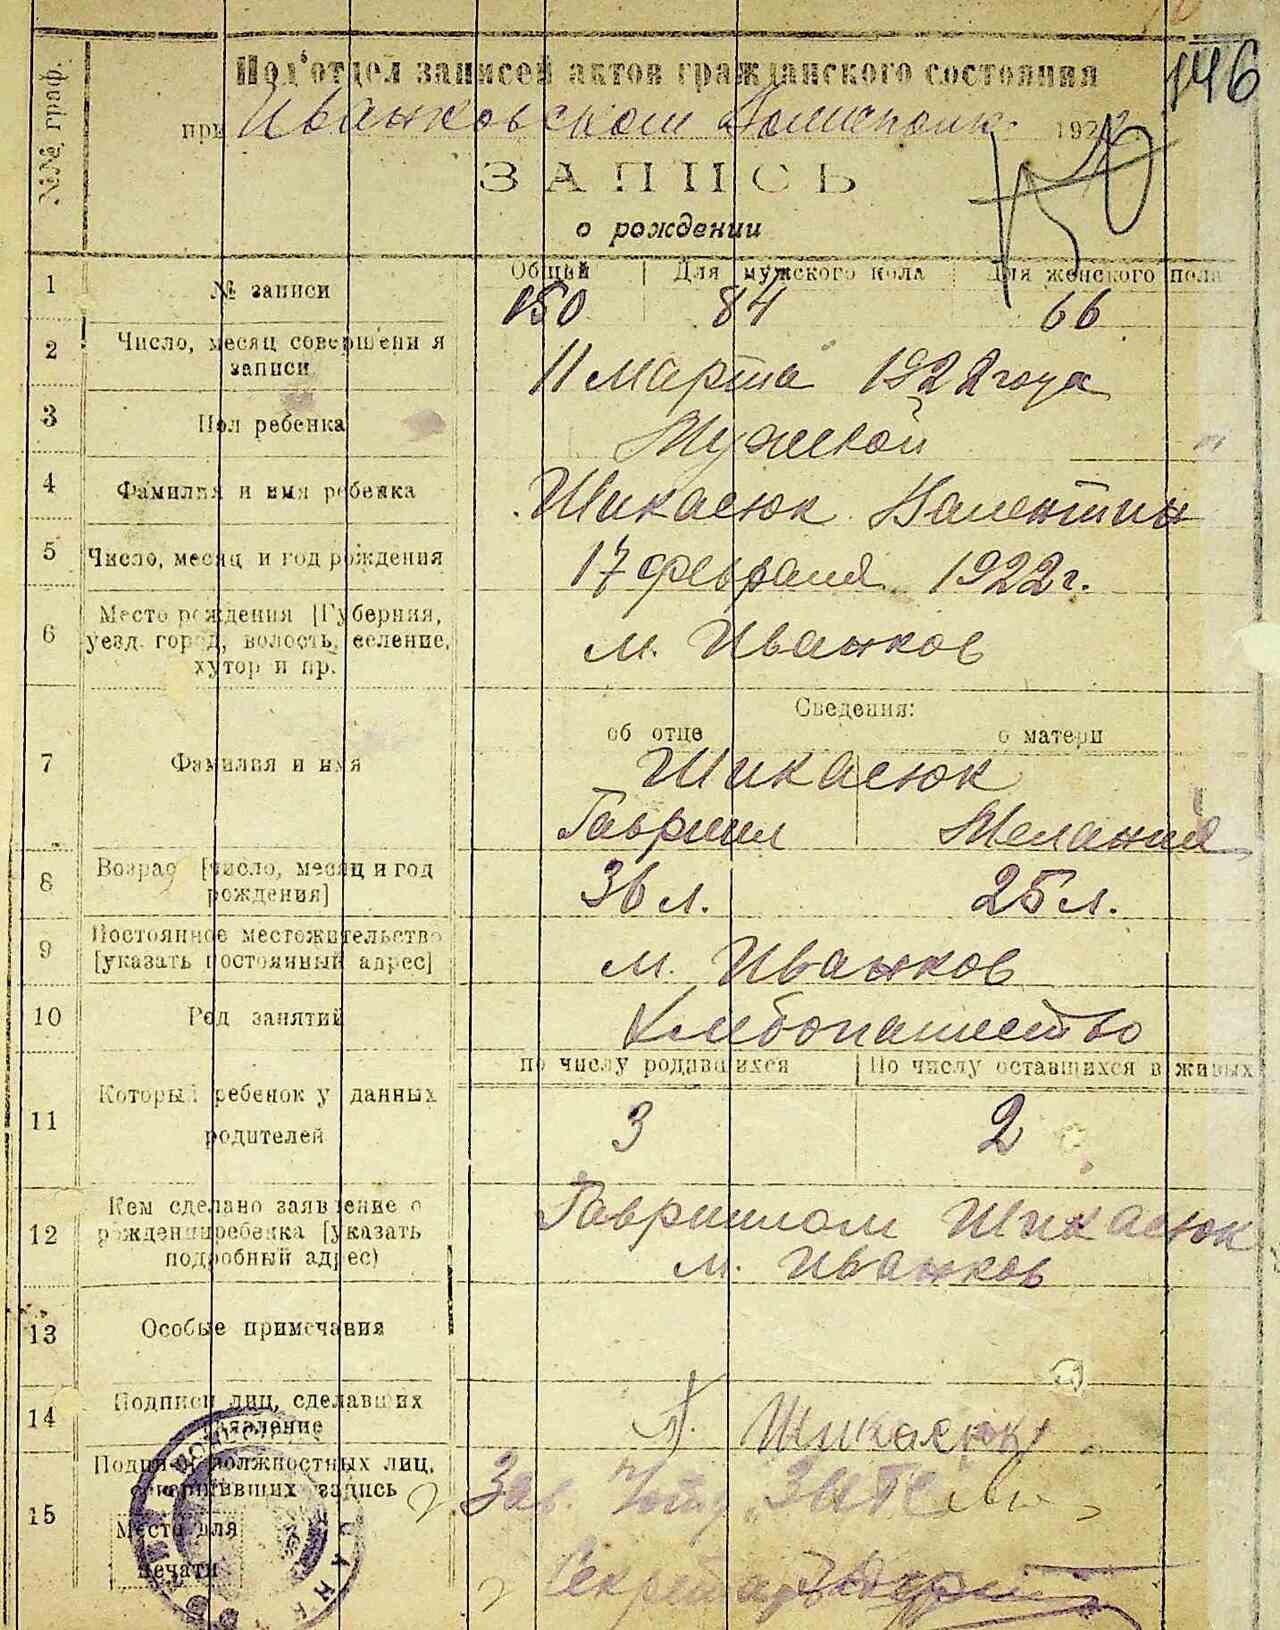 146
№№ граф.
Под'отдел записей актов гражданского состояния
при Иванковском Волисполк. 1922 г.
ЗАПИСЬ
о рождении
150
1 № записи
Общий Для мужского пола Для женского пола
150 84 66
2 Число, месяц совершения записи
11 марта 1922 года
3 Пол ребенка
Мужской
4 Фамилия и имя ребенка
Шикасюк Валентин
5 Число, месяц и год рождения
17 февраля 1922 г.
6 Место рождения [Губерния,
уезд, город, волость, селение,
хутор и пр.
м. Иванков
Сведения:
об отце о матери
7 Фамилия и имя
Шикасюк
Гавриил Мелания
8 Возраст [число, месяц и год
рождения]
36 л. 25 л.
9 Постоянное местожительство
[указать постоянный адрес]
м. Иванков
10 Род занятий
Хлебопашество
по числу родившихся По числу оставшихся в живых
11 Который ребенок у данных
родителей
3 2
12 Кем сделано заявление о
рождении ребенка [указать
подробный адрес)
Гавриилом Шикасюк
м. Иванков
13 Особые примечания
14 Подписи лиц, сделавших
заявление
Шикасюк
15 Подписи должностных лиц,
совершивших запись
Зав.
Место для
печати
Секретарь